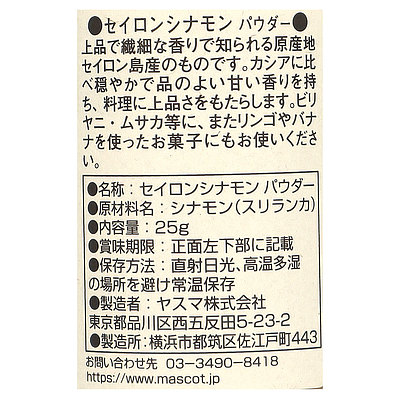 ●セイロンシナモン パウダー●
上品で繊細な香りで知られる原産地
セイロン島産のものです。カシアに比
べ穏やかで品のよい甘い香りを持
ち、料理に上品さをもたらします。ビリ
ヤニ・ムサカ等に、またリンゴやバナ
ナを使ったお菓子にもお使いくださ
い。
●名称：セイロンシナモン パウダー
●原材料名：シナモン(スリランカ)
●内容量：25g
●賞味期限：正面左下部に記載
●保存方法：直射日光、高温多湿
の場所を避け常温保存
●製造者：ヤスマ株式会社
東京都品川区西五反田5-23-2
●製造所：横浜市都筑区佐江戸町443
お問い合わせ先 03-3490-8418
https://www.mascot.jp/